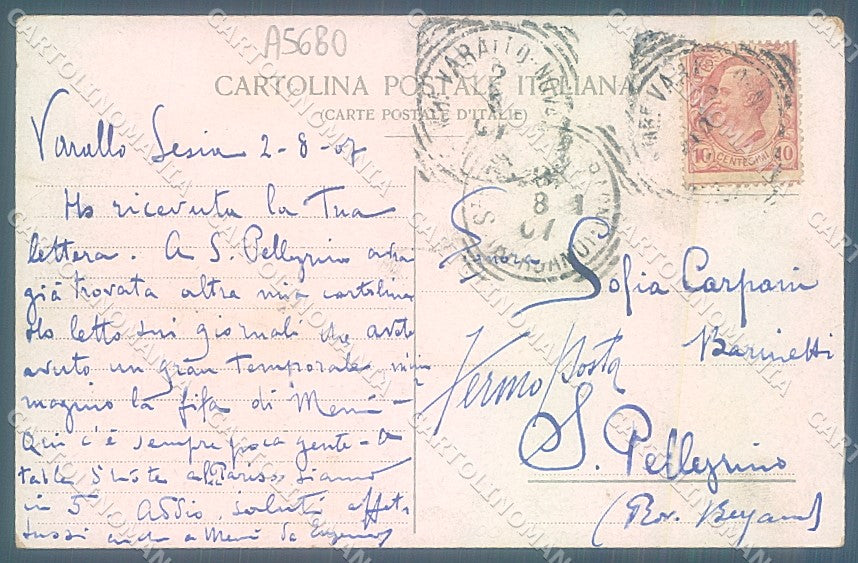 A5680
CARTOLINA POSTALE ITALIANA
(CARTE POSTALE D'ITALIE)
Varallo Sesia 2-8-07
Ho ricevuta la Tua
lettera. A S. Pellegrino avrai
già trovata altra mia cartolina
Ho letto sui giornali che avete
avuto un gran temporale
magino la fifa di Memi -
Qui c'è sempre poca gente - a
siamo
in 5. Addio, saluti affet-
tuosi anche a Memi da
Signora
Sofia Carpani
Barinetti
Fermo Posta
S. Pellegrino
(Prov. Bergamo)
10 CENTESIMI 10
VARALLO
8 07
CARTOLINOMANIA